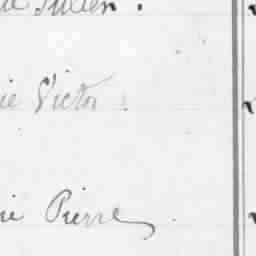 ie Julien.
ie Victor.
ie Pierre.